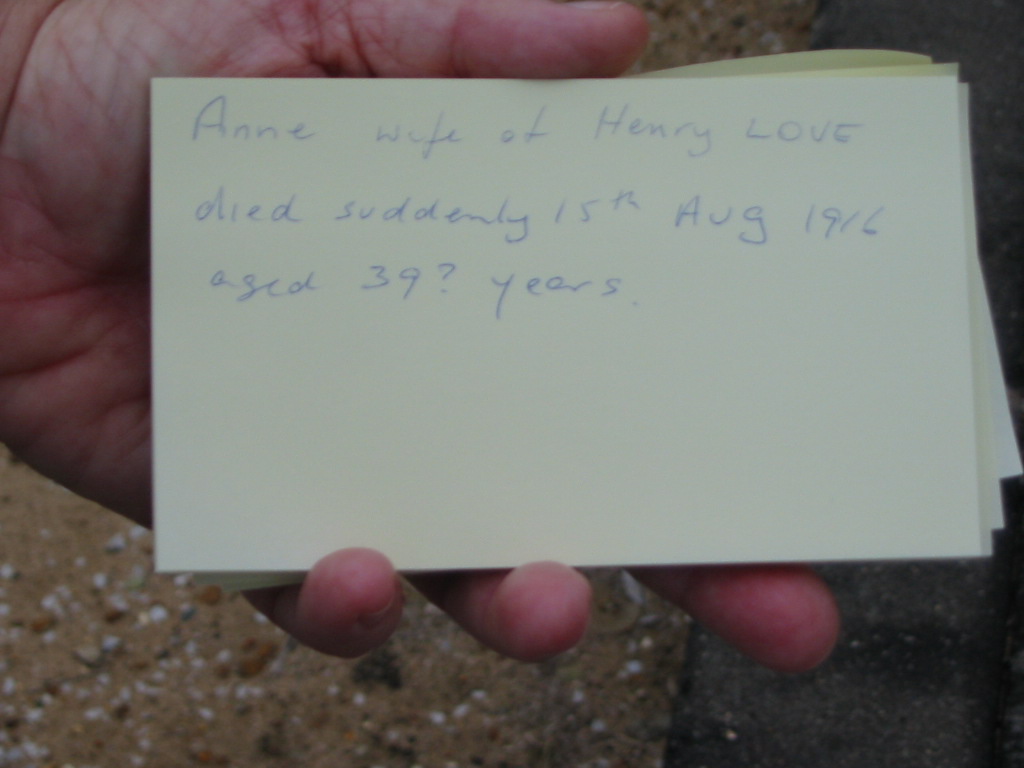 Anne wife of Henry LOVE
died suddenly 15th Aug 1916
aged 39? years.